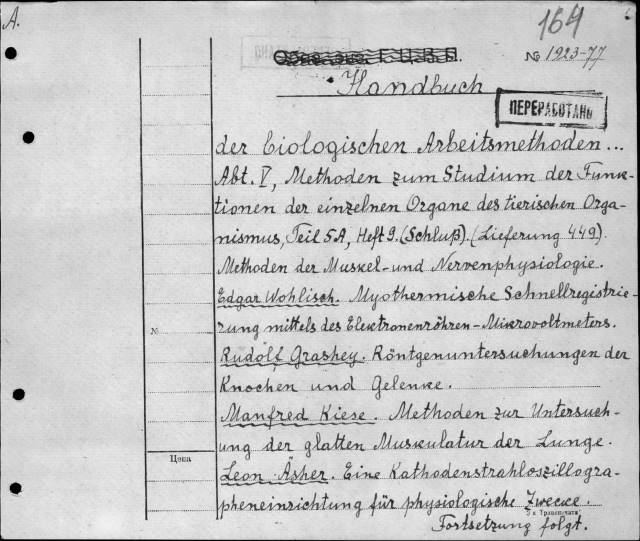 A.
164
№ 1923-77
Handbuch
ПЕРЕРАБОТАНО
der biologischen Arbeitsmethoden...
Abt. V, Methoden zum Studium der Funk-
tionen der einzelnen Organe des tierischen Orga-
nismus, Teil 5A, Heft 9. (Schluß). (Lieferung 449).
Methoden der Muskel- und Nervenphysiologie.
Edgar Wöhlisch. Myothermische Schnellregistrie-
rung mittels des Elektronenröhren-Mikrovoltmeters.
№
Rudolf Grashey. Röntgenuntersuchungen der
Knochen und Gelenke.
Manfred Kiese. Methoden zur Untersuch-
ung der glatten Muskulatur der Lunge.
Цена
Leon Äsher. Eine Kathodenstrahloszillogra-
pheneinrichtung für physiologische Zwecke.
Fortsetzung folgt.